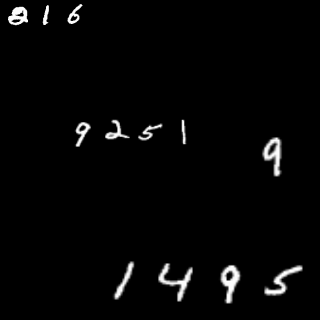 216
9251
9
1495